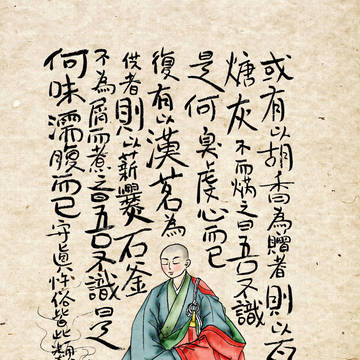 或有以胡香為贈者則以瓦
煻灰不而焫之曰吾不識
是何臭虔心而已
復有以漢茗為
供者則以薪爨石釜
不為屑而煮之曰吾不識是
何味濡腹而已守眞忤俗皆此類